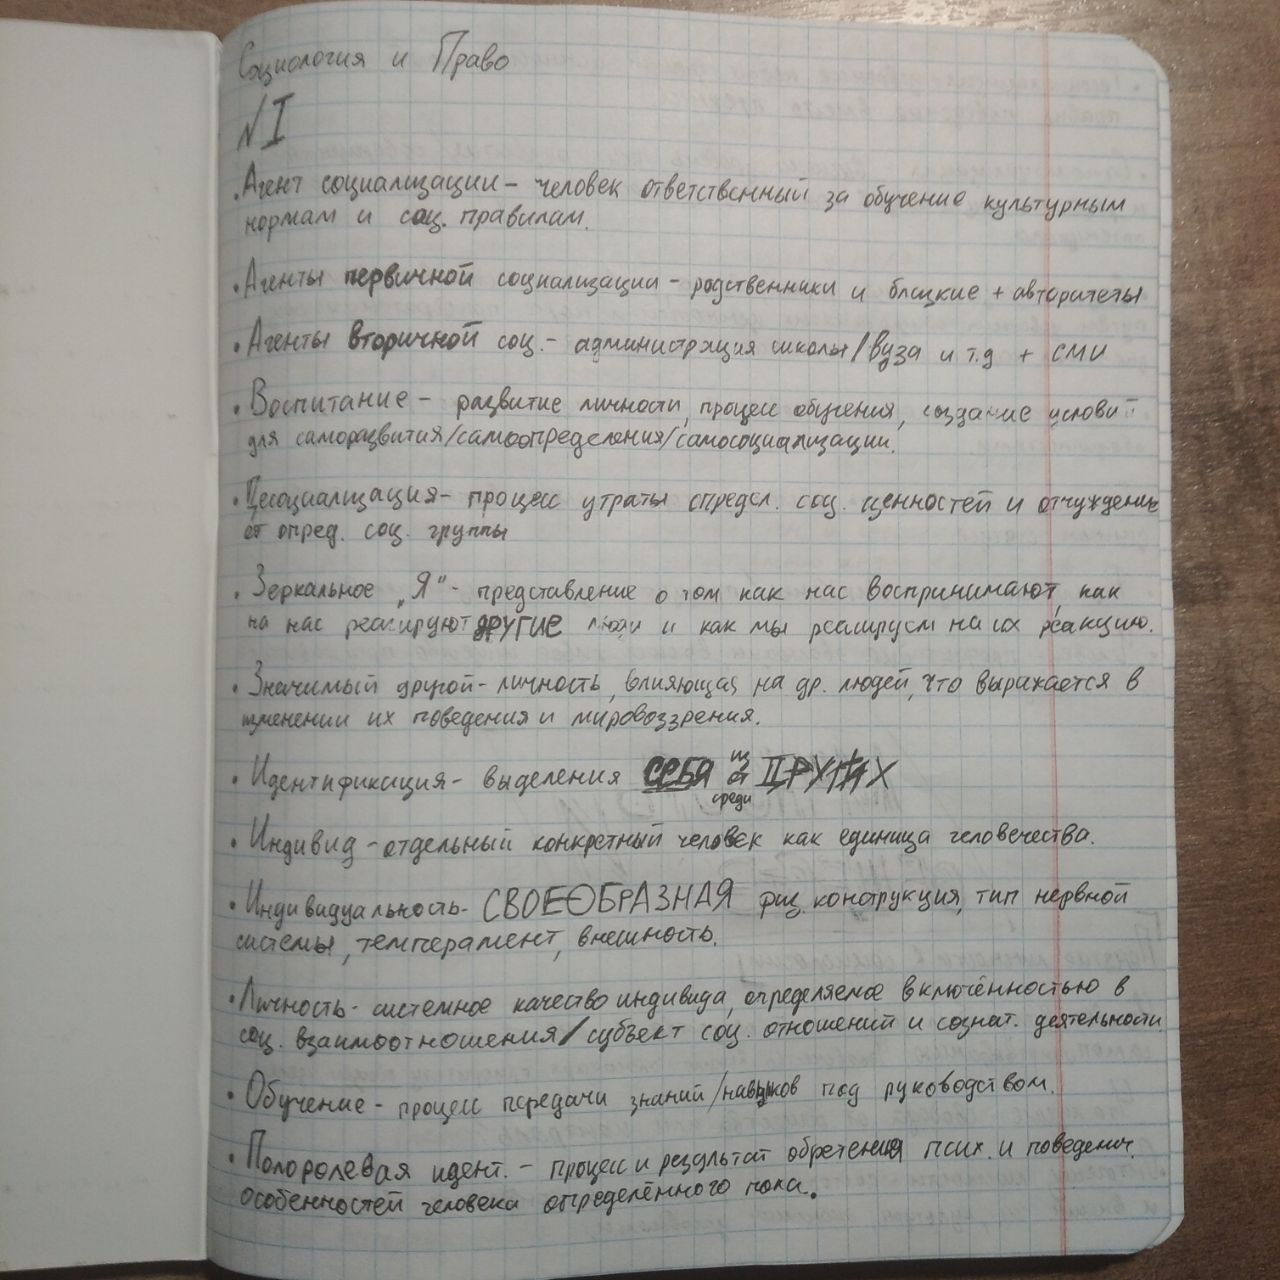 Социология и Право
№1
• Агент социализации – человек ответственный за обучение культурным
нормам и соц. правилам.
• Агенты первичной социализации – родственники и близкие + авторитеты
• Агенты вторичной соц. – администрация школы/вуза и т.д + СМИ
• Воспитание – развитие личности, процесс обучения, создание условий
для саморазвития/самоопределения/самосоциализации.
• Десоциализация – процесс утраты определ. соц. ценностей и отчуждение
от опред. соц. группы
• Зеркальное „Я" – представление о том как нас воспринимают, как
на нас реагируют ДРУГИЕ люди и как мы реагируем на их реакцию.
• Значимый другой – личность, влияющая на др. людей, что выражается в
изменении их поведения и мировоззрения.
• Идентификация – выделения СЕБЯ из ДРУГИХ
среди
• Индивид – отдельный конкретный человек как единица человечества.
• Индивидуальность – СВОЕОБРАЗНАЯ физ. конструкция, тип нервной
системы, темперамент, внешность.
• Личность – системное качество индивида, определяемое включённостью в
соц. взаимоотношения/субъект соц. отношений и сознат. деятельности
• Обучение – процесс передачи знаний/навыков под руководством.
• Полоролевая идент. – процесс и результат обретения псих. и поведенич.
особенностей человека определённого пола.